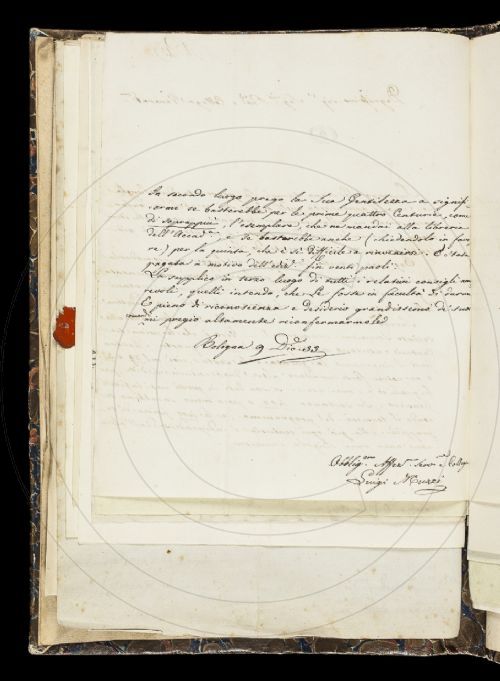 In secondo luogo prego la Sua Gentilezza a signifi
carmi se basterebbe per le prime quattro Centurie, come
di soprappiù, l'esemplare, che ne mandai alla libreria
dell'Accad.a, e se basterebbe anche (chiedendolo in favo
re) per la quinta, che è sì difficile a rinvenirsi. È stata
pagata a motivo dell' fin venti paoli.
La supplico in terzo luogo di tutti i relativi consigli
revoli, quelli intendo, che Le fosse in facoltà di
E pieno di riconoscenza e desiderio grandissimo di suoi
comandi mi pregio altamente riconfermarmele
Bologna 9 33
Obblig.mo Affez.mo Serv.
Luigi Muzzi